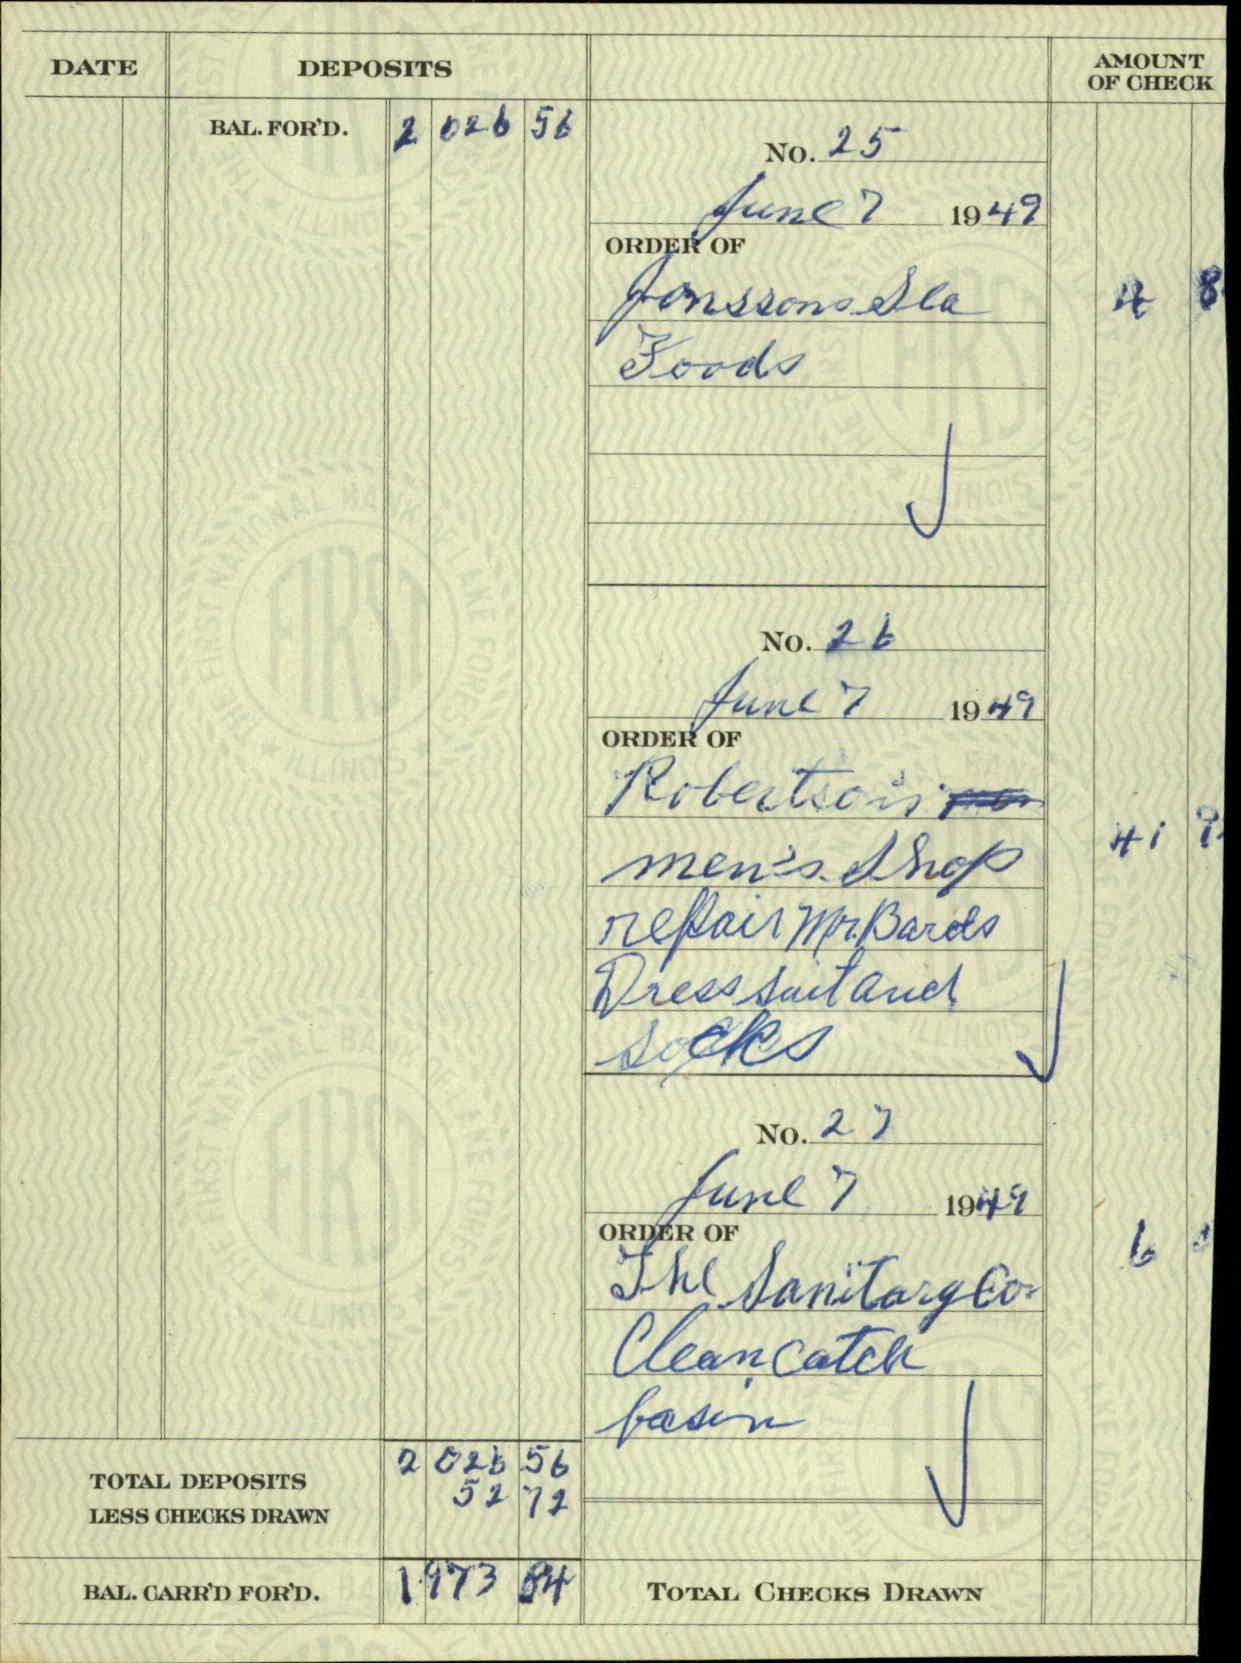 DATE DEPOSITS AMOUNT
OF CHECK
BAL. FOR'D. 2 026 56
No. 25
June 7 1949
ORDER OF
Jonssons Sea 4 8
Foods
No. 26
June 7 1949
ORDER OF
Robertson's
men's Shop 41 9
repair Mr. Bards
Dress suit and
socks
No. 27
June 7 1949
ORDER OF
The Sanitary Co. 6
Clean Catch
basin
TOTAL DEPOSITS 2 026 56
LESS CHECKS DRAWN 52 72
BAL. CARR'D FOR'D. 1973 84 TOTAL CHECKS DRAWN